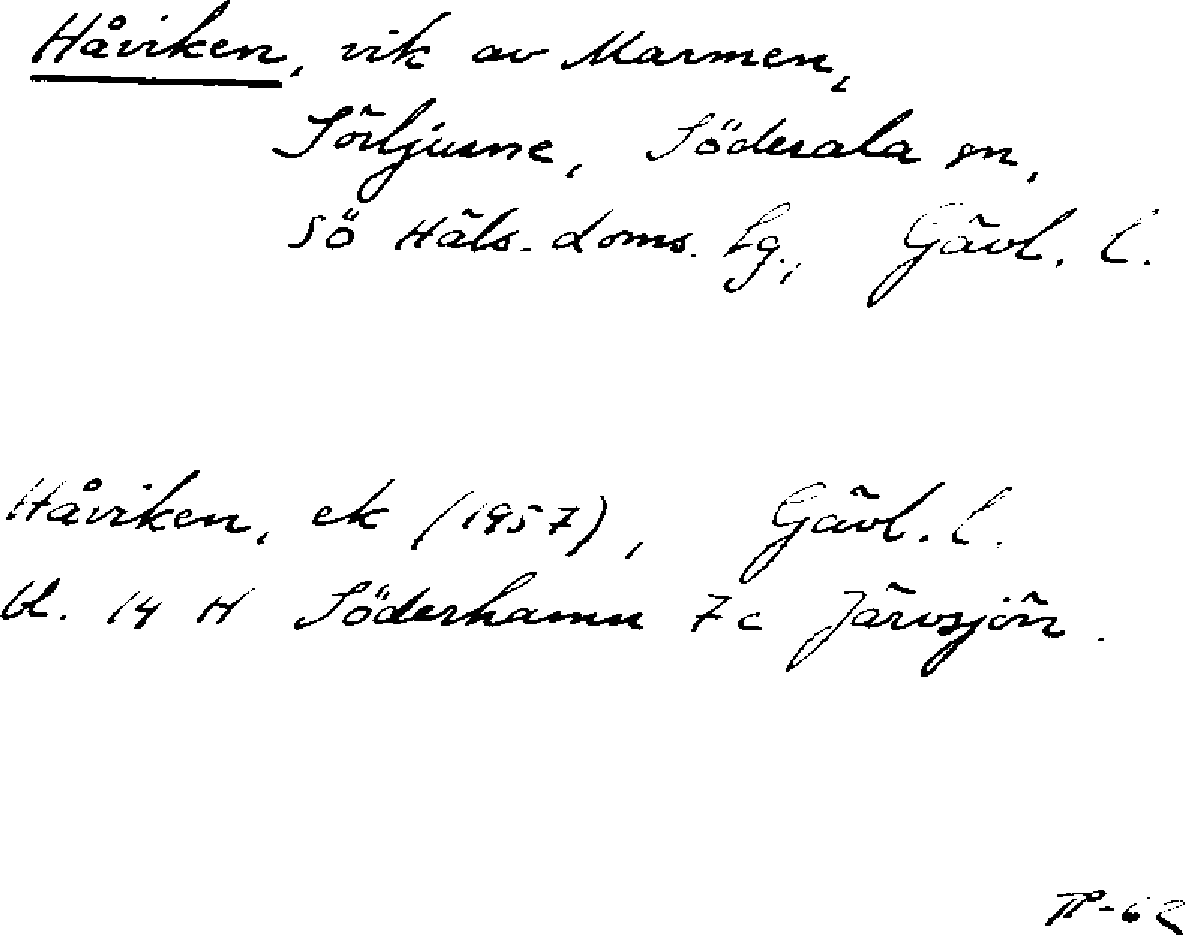 Håviken, vik av Marmen,
Sörljusne, Söderala sn,
Sö Häls. doms. lg., Gävl. l.
Håviken, ek (1957), Gävl. l.
bl. 14 H Söderhamn 7c Järvsjön.